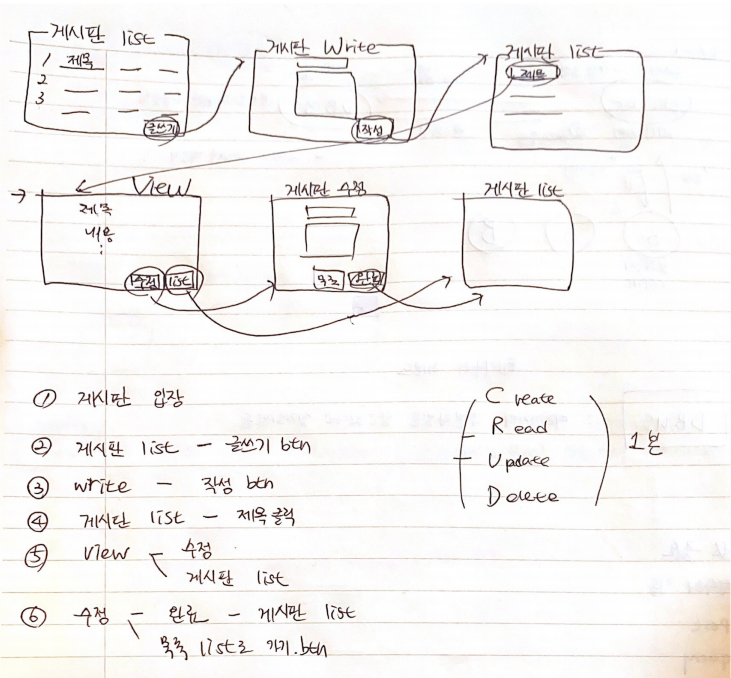 게시판 list
게시판 Write
게시판 list
1 제목
2
3
글쓰기
작성
제목
→ View
게시판 수정
게시판 list
제목
내용
:
수정 list
목록 완료
① 게시판 입장
② 게시판 list - 글쓰기 btn
③ write - 작성 btn
④ 게시판 list - 제목 클릭
⑤ view - 수정
게시판 list
⑥ 수정 - 완료 - 게시판 list
목록 list로 가기.btn
Create
Read
Update
Delete